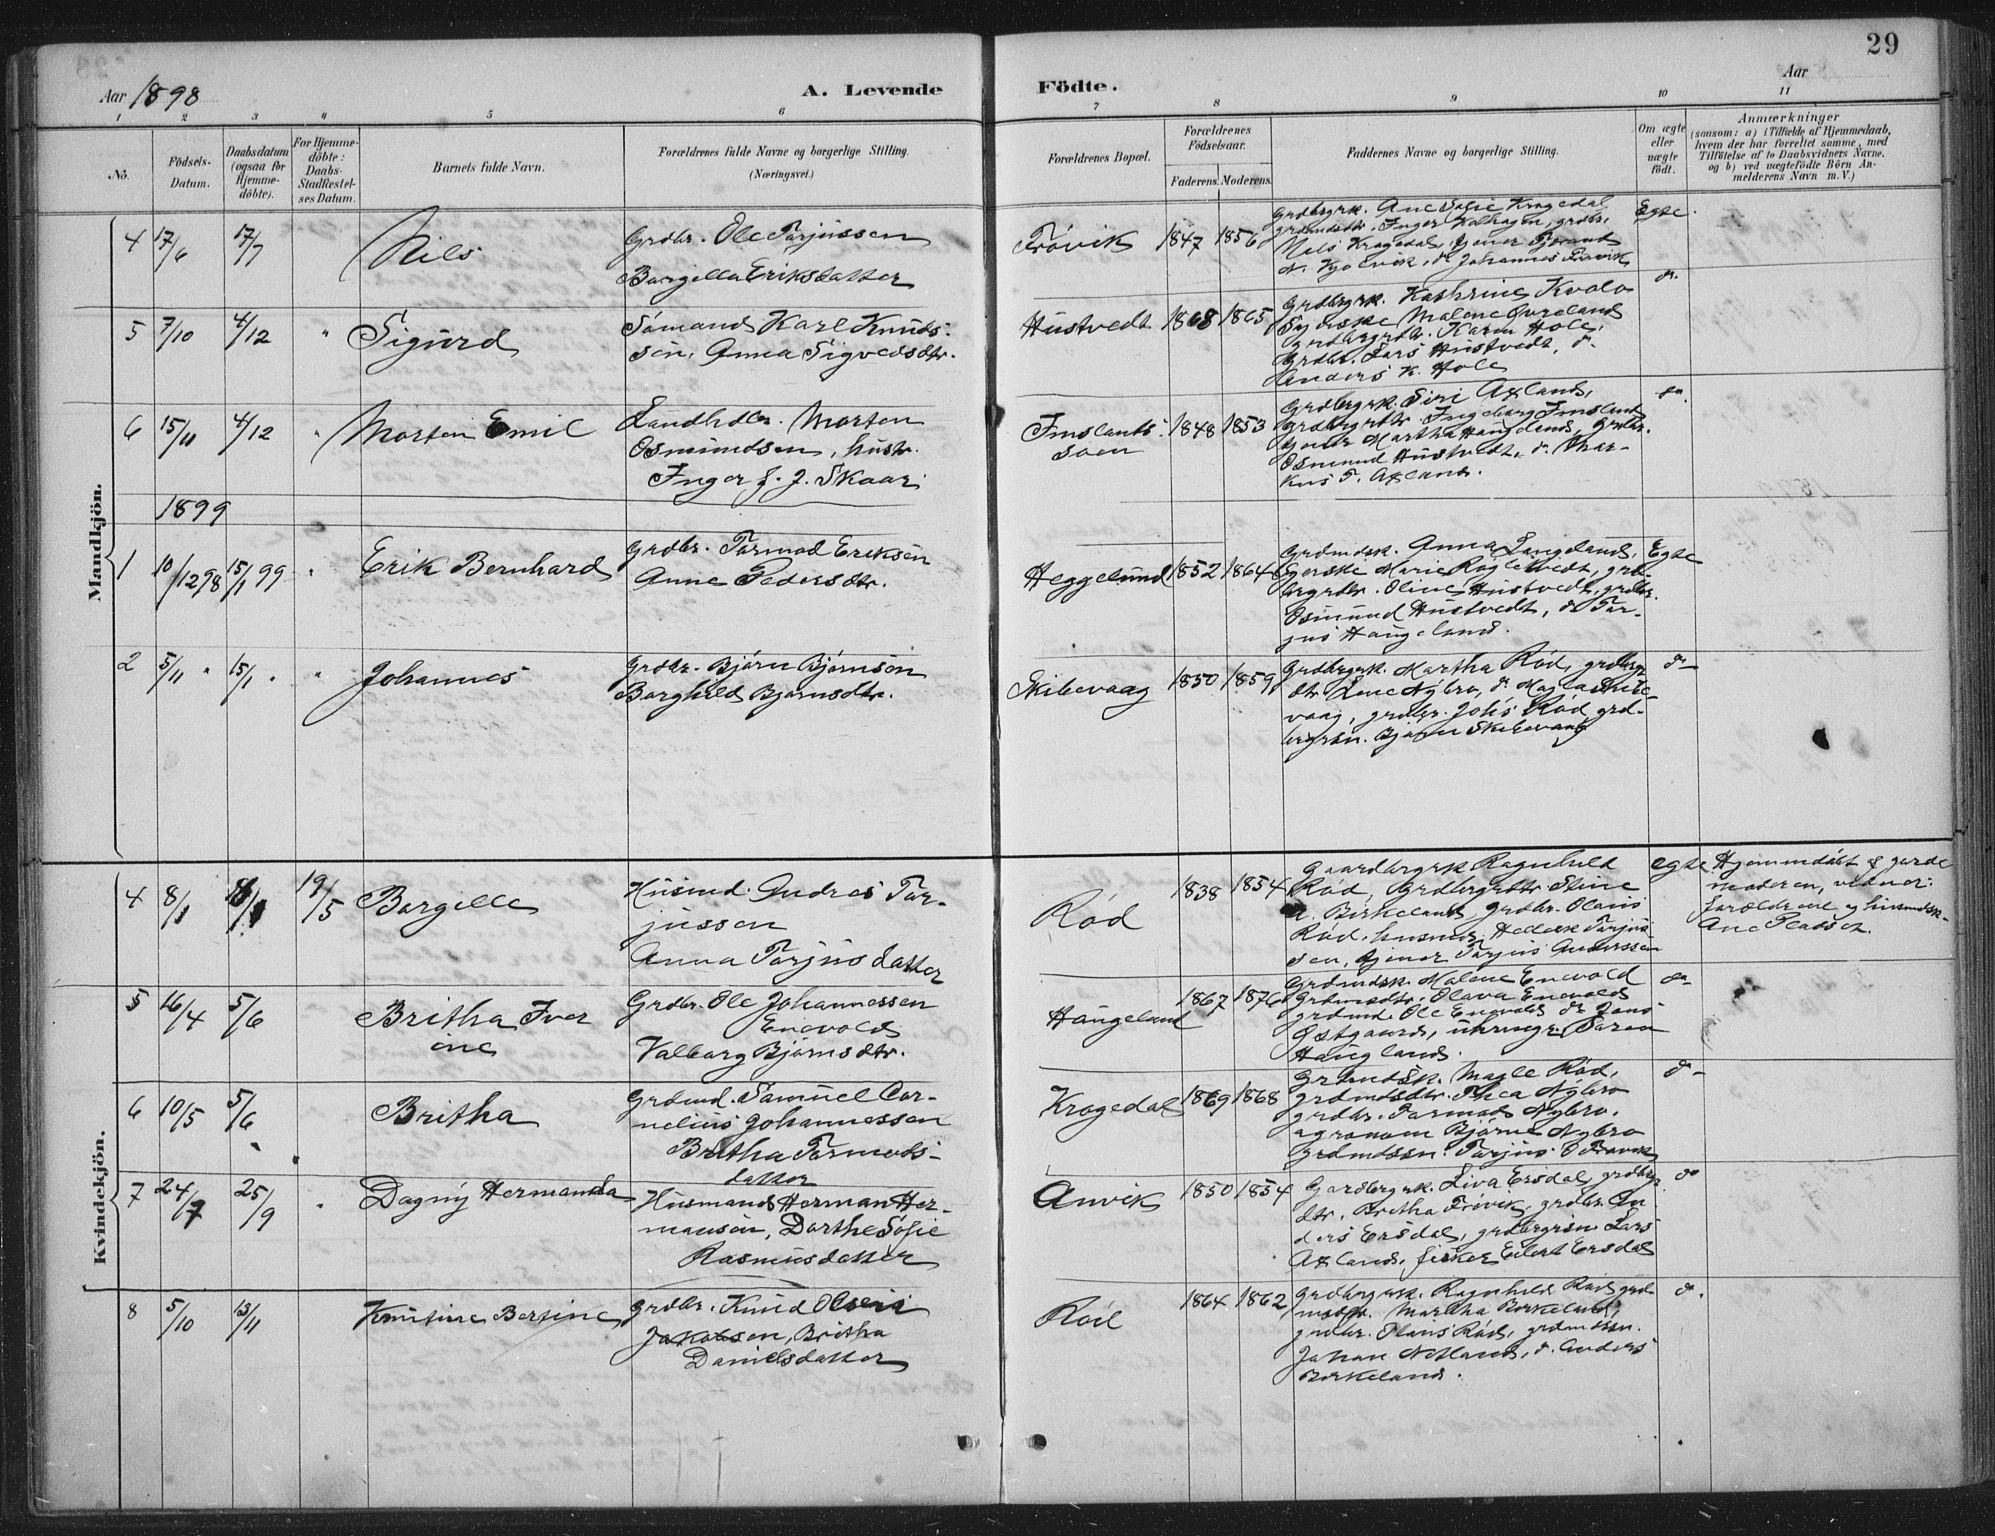 29
Aar 1898
A. Levende
Födte.
Aar
1 2 3 4 5 6 7 8 9 10 11
Nö.
Födsels-
Datum.
Daabsdatum
(ogsaa för
Hjemme-
döbte).
For Hjemme-
döbte:
Daabs-
Stadfestel-
ses Datum.
Barnets fulde Navn.
Forældrenes fulde Navne og borgerlige Stilling.
(Næringsvei.)
Forældrenes Bopæl.
Forældrenes
Födselsaar.
Faderens. Moderens.
Faddernes Navne og borgerlige Stilling.
Om ægte
eller
uægte
födt.
Anmærkninger
(saasom: a) i Tilfælde af Hjemmedaab,
hvem der har forrettet samme, med
Tilföielse af to Daabsvidners Navne.
og b) ved uægtefödte Börn An-
melderens Navn m. V.)
Mandkjön.
4 17/6 17/7 Nils
Grdbr. Ole Torjussen
Borgilla Eriksdatter
Frövik 1847 1856
Grdbrgrk. Ane Sofie Kragedal
Nils Kragedal, tjener
Johannes Frövik
Egte.
5 7/10 4/12 " Sigurd
Sömand Karl Knud-
sen, Anna Sigvedsdtr.
Hustvedt 1868 1865
Grdbrgrk. Kathrine Kvalo
Syerske Malene Qvreland
grdbrgrdtr. Karen Hole,
Grdbr. Lars Hustvedt, do.
Anders K. Hole
do.
6 15/11 4/12 " Morten Emil
Landhdlr. Morten
Osmundsen, hustr.
Inger f. J. Skaar
Imslands-
soen 1848 1853
Grdbrgrk. Siri Axland,
Grdbrgrdtr. Ingeborg Imsland
Martha Haugeland, Grdbr.
Osmund Hustvedt, do. Mar-
kus T. Axland.
do.
1899
1 10/12 98 15/1 99 " Erik Bernhard
Grdbr. Tormod Eriksen
Anne Pedersdtr.
Heggelund 1852 1864
Grdmdsk. Anna Langeland,
Marie Röglevedt, grd-
brgrdtr. Oline Hustvedt, grdbr.
Osmund Hustvedt, do. Tor-
jus Haugeland.
Egte
2 5/11 " 15/1 " " Johannes
Grdbr. Björn Björnsen
Borghild Björnsdtr.
Skibevaag 1850 1859
Grdbrgrk. Martha Röd, grdbrgr
dtr. Lene Nybro, do. Magla Skibe-
vaag, grdbr. Johs Röd, grd-
brgrsn. Björn Skibevaag
do
Kvindekjön.
4 8/1 19/5 Borgille
Husmd. Andres Tor-
jussen
Anna Torjusdatter
Röd 1838 1854
Gaardbrgrk Ragnhild
Röd, Grdbrgrdtr. Stine
A. Birkeland, grdbr. Olaus
Röd, husmd. Torjus-
sen, tjener Torjus Anderssen
egte
Hjemmedöbt af jorde-
moderen, vidner:
forældrene og husmdsk.
Ane Pladset.
5 16/4 5/6 Britha Iver
ine
Grdbr. Ole Johannessen
Enevold
Valborg Björnsdtr.
Haugeland 1867 1876
Grdmdsk. Malene Enevold
Grdmdsdtr. Olava Enevold
grdmd. Ole Enevold do Jens
Östgaard, uhrmgr. Sören
Haugland.
do
6 10/5 5/6 Britha
Grdmd. Samuel Cor-
nelius Johannessen
Britha Tormods-
datter
Kragedal 1869 1868
Grdmdsk. Magle Röd,
grdmdsdtr. Thea Nybro
grdbr. Tormod Nybro.
agronom Björne Nybro
Grdmdssn. Torjus O Frövik
do
7 24/7 25/9 " Dagny Hermanda
Husmand Herman Her-
mansen, Dorthe Sofie
Rasmusdatter
Anvik 1850 1854
Gardbrgrk. Liva Ersdal, grdbrgr
dtr. Britha Frövik, grdbr. An
ders Ersdal, grdbrgrsn Lars
Axland, fisker Eilert Ersdal
do
8 5/10 13/11 Knutine Bertine
Grdbr. Knud Olsen
Jakobsen, Britha
Danielsdatter
Röd 1864 1862
Grdbrgrk. Ragnhild Röd, grd-
Martha Birkeland,
grdbr. Olaus Röd, grdmdssn.
Johan Netland, do. Anders
Birkeland.
do.